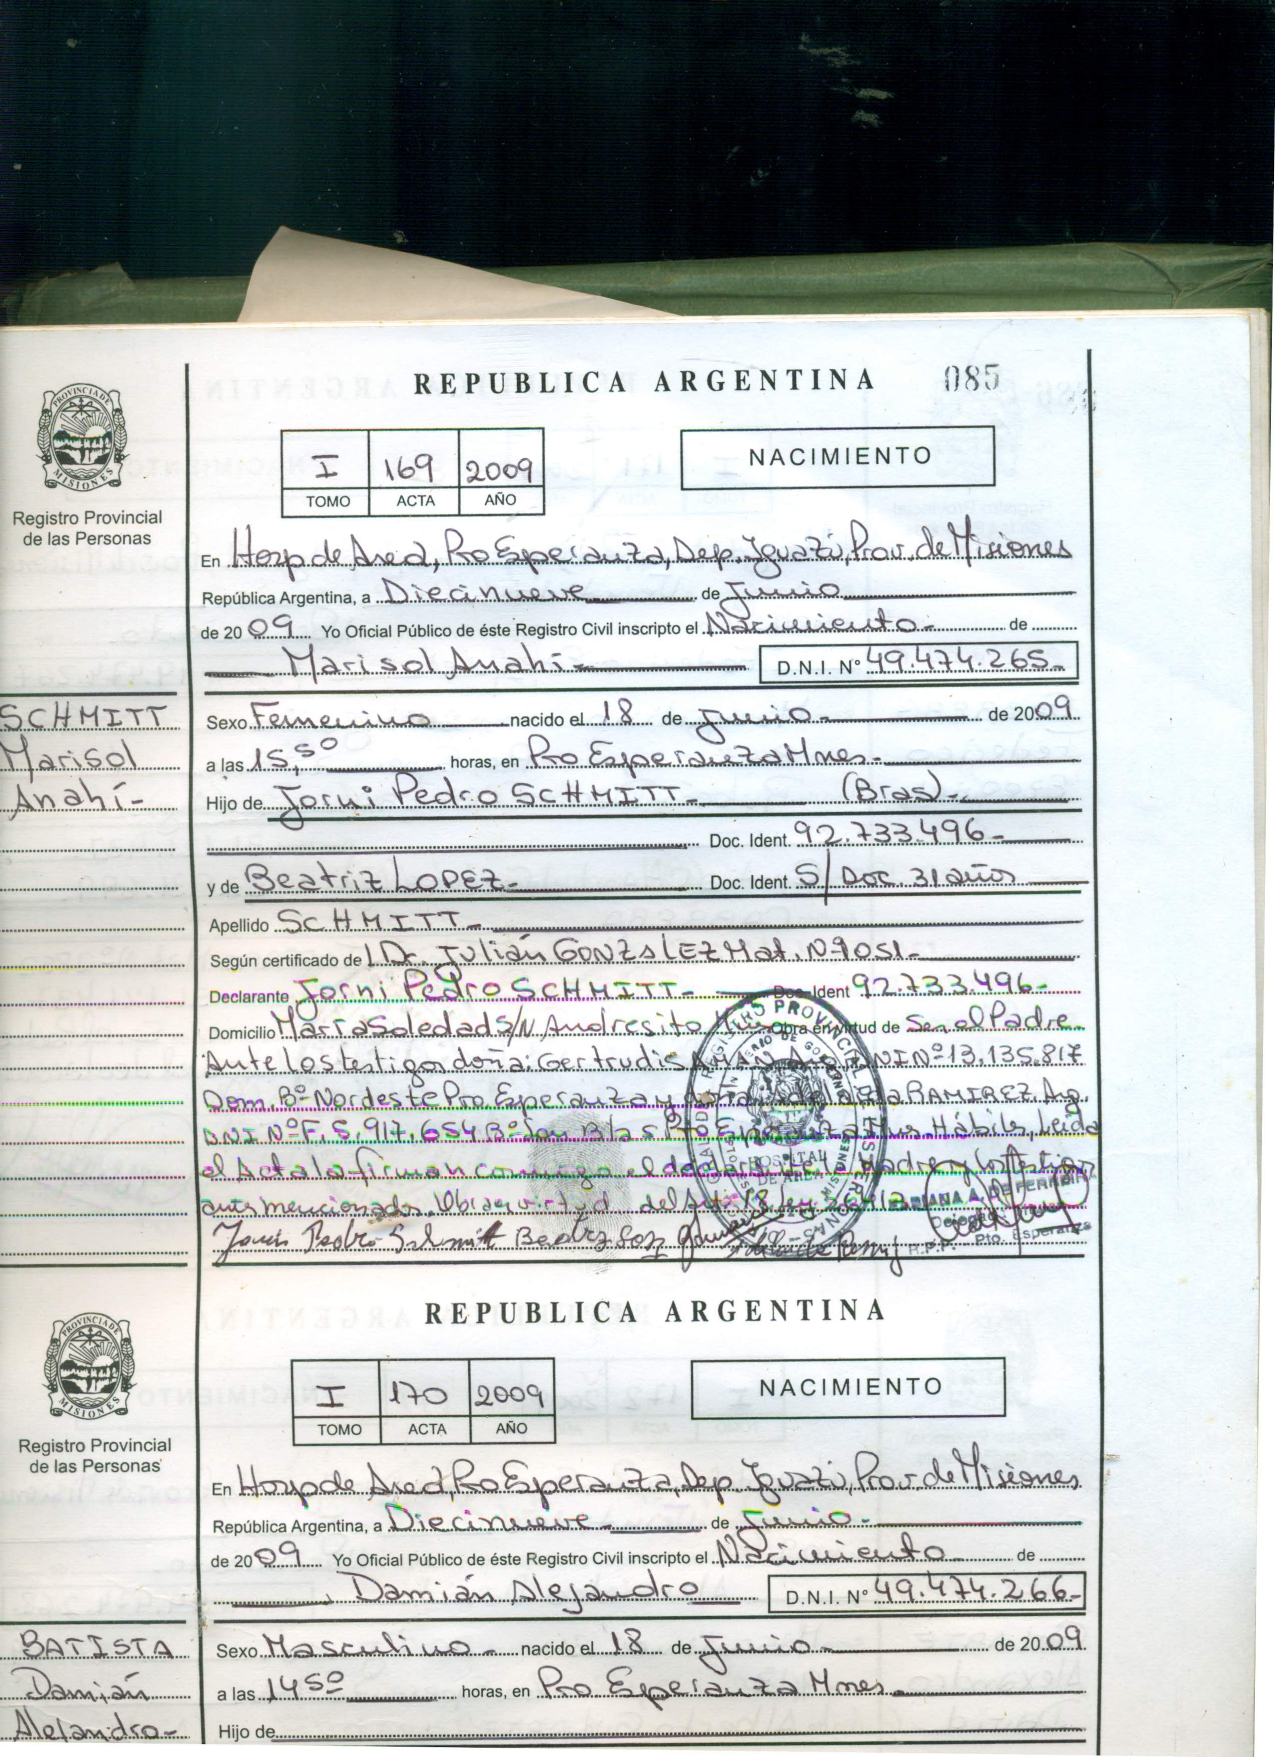 REPUBLICA ARGENTINA 085
PROVINCIA DE MISIONES
Registro Provincial
de las Personas
I 169 2009
TOMO ACTA AÑO
NACIMIENTO
En Hosp de Area, Pto Esperanza, Dep. Iguazú, Prov. de Misiones
República Argentina, a Diecinueve de Junio
de 2009 Yo Oficial Público de éste Registro Civil inscripto el Nacimiento de
Marisol Anahí D.N.I. Nº 49.474.265
SCHMITT
Marisol
Anahí
Sexo Femenino nacido el 18 de Junio de 2009
a las 15,50 horas, en Pto Esperanza Mnes.
Hijo de Jorni Pedro SCHMITT (Bras)
Doc. Ident. 92.733.496
y de Beatriz LOPEZ Doc. Ident. S/Doc. 31 años
Apellido SCHMITT
Según certificado de l Dr. Julián GONZALEZ Mat. Nº 1051
Declarante Jorni Pedro SCHMITT Doc. Ident 92.733.496
Domicilio María Soledad S/N Andresito Obra en virtud de Ser el Padre
Ante los testigos doña: Gertrudis DNI Nº 13.135.817
Dom. Bº Nordeste Pto Esperanza y doña RAMIREZ Arg.
DNI Nº F. 5.917.654 Bº San Blas Pto Esperanza Mnes. Hábiles, Leida
el Acta la firman conmigo el declarante la Madre y los testigos
antes mencionados. Obra en virtud del Art. 18 Ley
REGISTRO PROVINCIAL DE LAS PERSONAS
HOSPITAL
DE AREA
ADRIANA A. DE FERREIRA
R.P.P. Pto. Esperanza
REPUBLICA ARGENTINA
PROVINCIA DE MISIONES
Registro Provincial
de las Personas
I 170 2009
TOMO ACTA AÑO
NACIMIENTO
En Hosp de Area, Pto Esperanza, Dep. Iguazú, Prov. de Misiones
República Argentina, a Diecinueve de Junio
de 2009 Yo Oficial Público de éste Registro Civil inscripto el Nacimiento de
Damián Alejandro D.N.I. Nº 49.474.266
BATISTA
Damián
Alejandro
Sexo Masculino nacido el 18 de Junio de 2009
a las 14 50 horas, en Pto Esperanza Mnes.
Hijo de